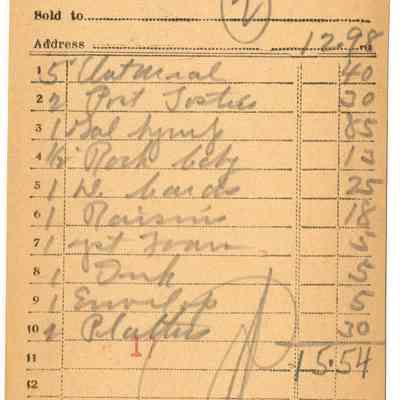 Sold to
2
Address 12.98
1 5 Oatmeal 40
2 2 Post Tosties 30
3 1 Gal Syrup 85
4 1/2 Rock 13
5 1 25
6 1 Raisins 18
7 1 yst Foam 5
8 1 Ink 5
9 1 Envelop 5
10 30
1
11 15.54
12